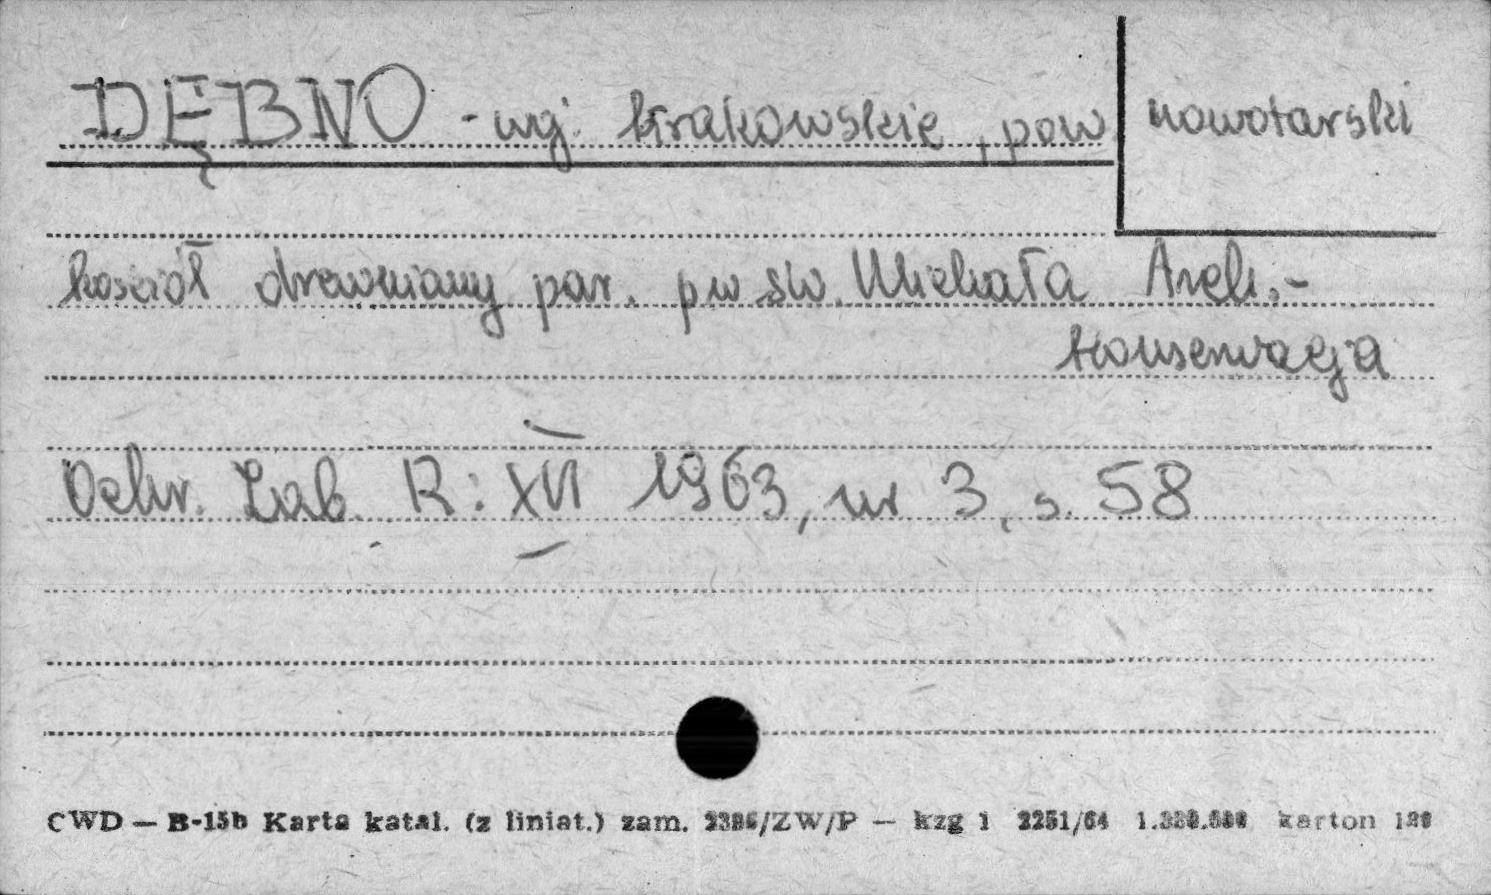 DĘBNO - woj. krakowskie, pow nowotarski
kościół drewniany par. pw św. Michała Arch. -
konserwacja
Ochr. Zab. R: XVI 1963, nr 3, s. 58
CWD — B-15b Karta katal. (z liniat.) zam. /ZW/P — kzg 1 2251/64 karton